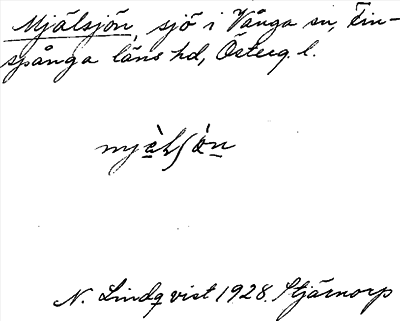 Mjälsjön, sjö i Vånga sn, Fin-
spånga läns hd, Österg. l.
N. Lindqvist 1928. Stjärnorp